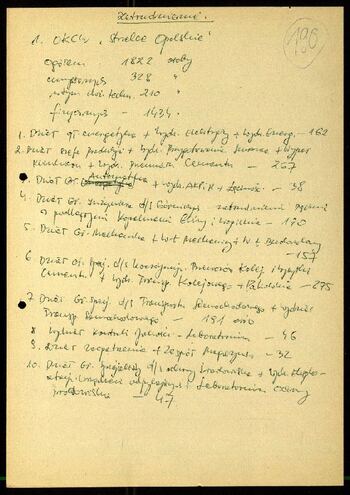 Zatrudnienie.
196
1. OKCiW "Strzelce Opolskie"
ogółem 1822 osoby
umysłowych 328 "
210
fizycznych - 1434
1. Dział Gł. energetyka + Wydz. Elektryczny + Wydz. Energ. - 162
2. Dział Szefa Produkcji + Wydz. Przygotowania Surowca + Wypał
Klinkieru + Wydz. Przemiału Cementu - 267
Automatyka
Dział Gł. + Wydz. AKPiA + Łączność - 38
4. Dział Gł. Inżyniera d/s Górniczych zatrudnienie łącznie
z Kopalniami Gliny i Wapienia - 170
5. Dział Gł. Mechanika + W-ł Mechaniczny + W-ł Budowlany
- 157
6 Dział Gł. Spec. d/s Przewozów Kolej. i Wysyłki
Cementu + Wydz. Transp. Kolejowego + Pakownia - 275
7 Dział Gł. Spec. d/s Transportu Samochodowego + Wydział
Transp. Samochodowego - 191 osób
8 Wydział Kontroli Jakości - Laboratorium - 46
9. Dział Zaopatrzenia + Zespół Magazynów - 32
10. Dział Gł. Specjalisty d/s Ochrony Środowiska + Wydz. Eksploatacji
Urządzeń Odpylających + Laboratorium Ochrony
Środowiska - 47